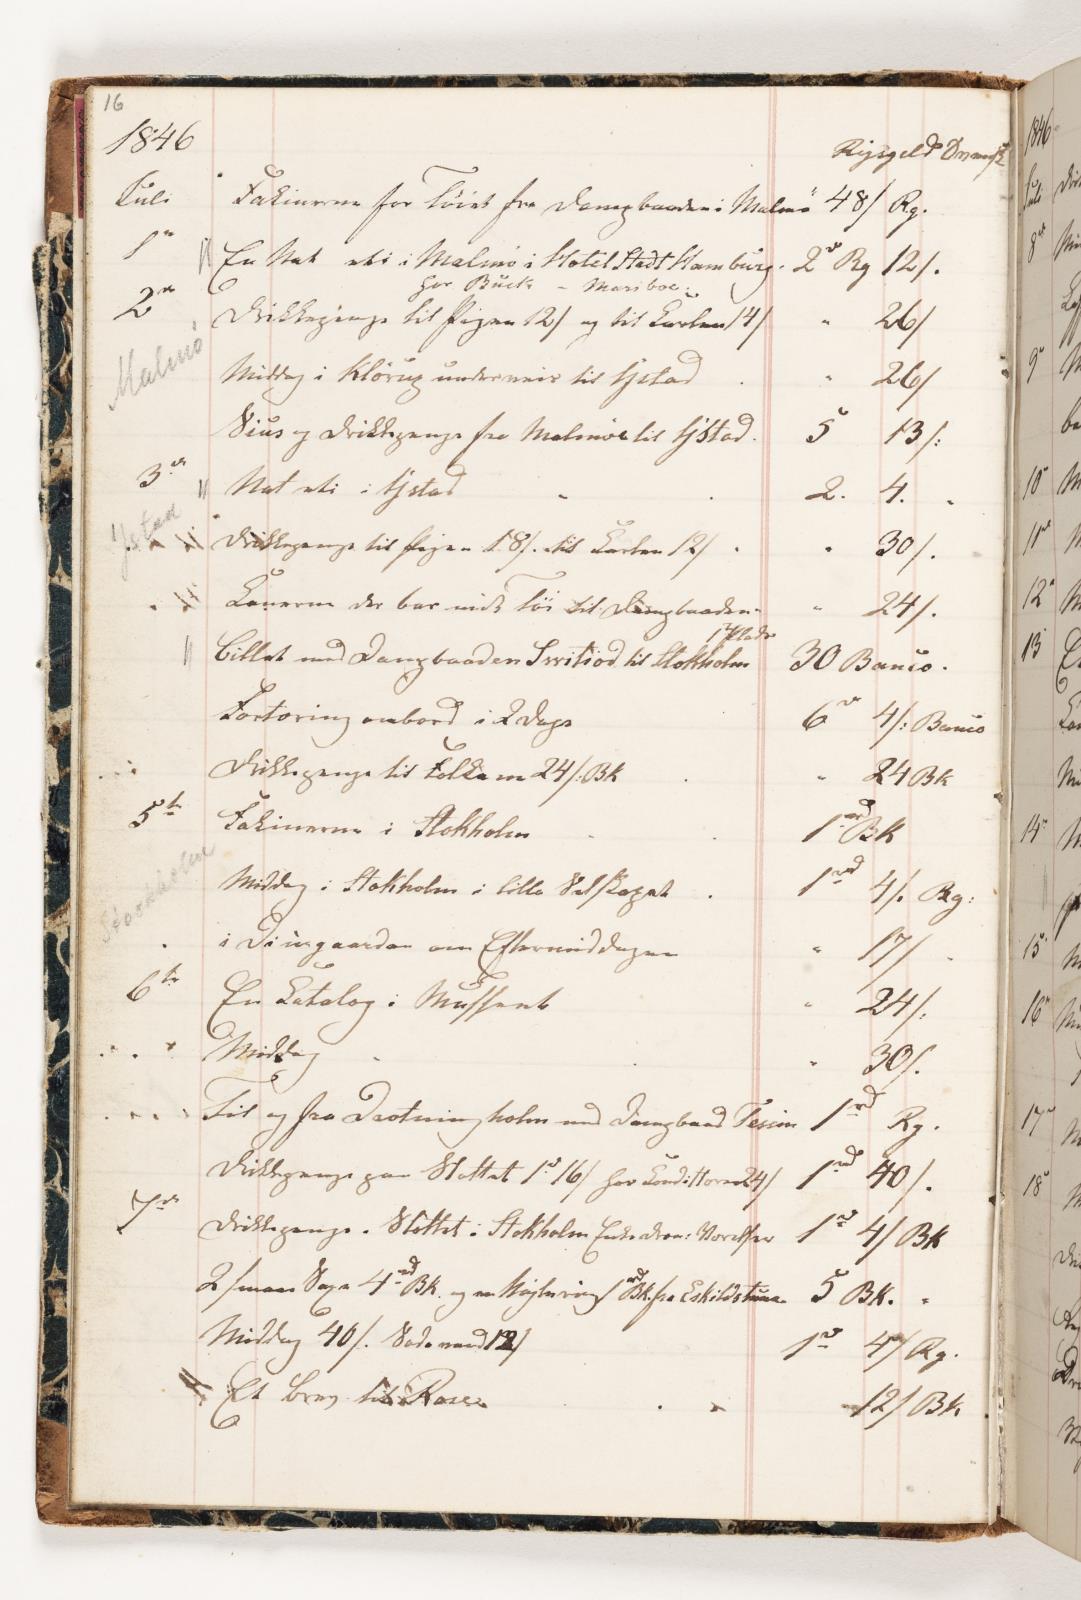 16
1846
Rigsgeld Dansk
Juli Fakinerne for Töiet fra Dampbaaden i Malmö 48/ Rg.
1ste En Nat i Malmö i Hotel Stadt Hamburg. 2rd Rg 12/.
har Bück - Mariboe.
2n Drikkepenge til Pigen 12/ og til Karlen 14/ " 26/
Malmö
Middag i Klörup underveis til Ystad " 26/
og Drikkepenge fra Malmöe til Ystad. 5 13/:
3die Nat i Ystad 2. 4.
Ystad
Drikkepenge til Pigen 18/. til Karlen 12/ " 30/.
Konerne der bar mit Töi til Dampbaaden " 24/.
1 Plads
Billet med Dampbaaden Svitiod til Stokholm 30 Banco.
Fortæring ombord i 2 Dage 6rd 4/: Banco
Drikkepenge til Folkene 24/: BK " 24 BK
5te Fakinerne i Stokholm 1rd BK
Stockholm
Middag i Stokholm i lille Selskapet 1rd 4/. Rg:
i Diurgaarden om Eftermiddagen " 17/
6te En Katalog i Museet " 24/.
Middag " 30/.
Til og fra Drotningholm med Dampbaad Tessin 1rd Rg.
Drikkepenge paa Slottet 1rd 16/ hos Konditoren 24/ 1rd 40/.
7de Drikkepenge. Slottet i Stokholm 1rd 4/ BK
2 4rd BK. og en 1rd BK fra Eskildstuna 5 BK.
Middag 40/. Sodavand 12/ 1rd 4/ Rg.
Et Brev til Rosen 12/ BK